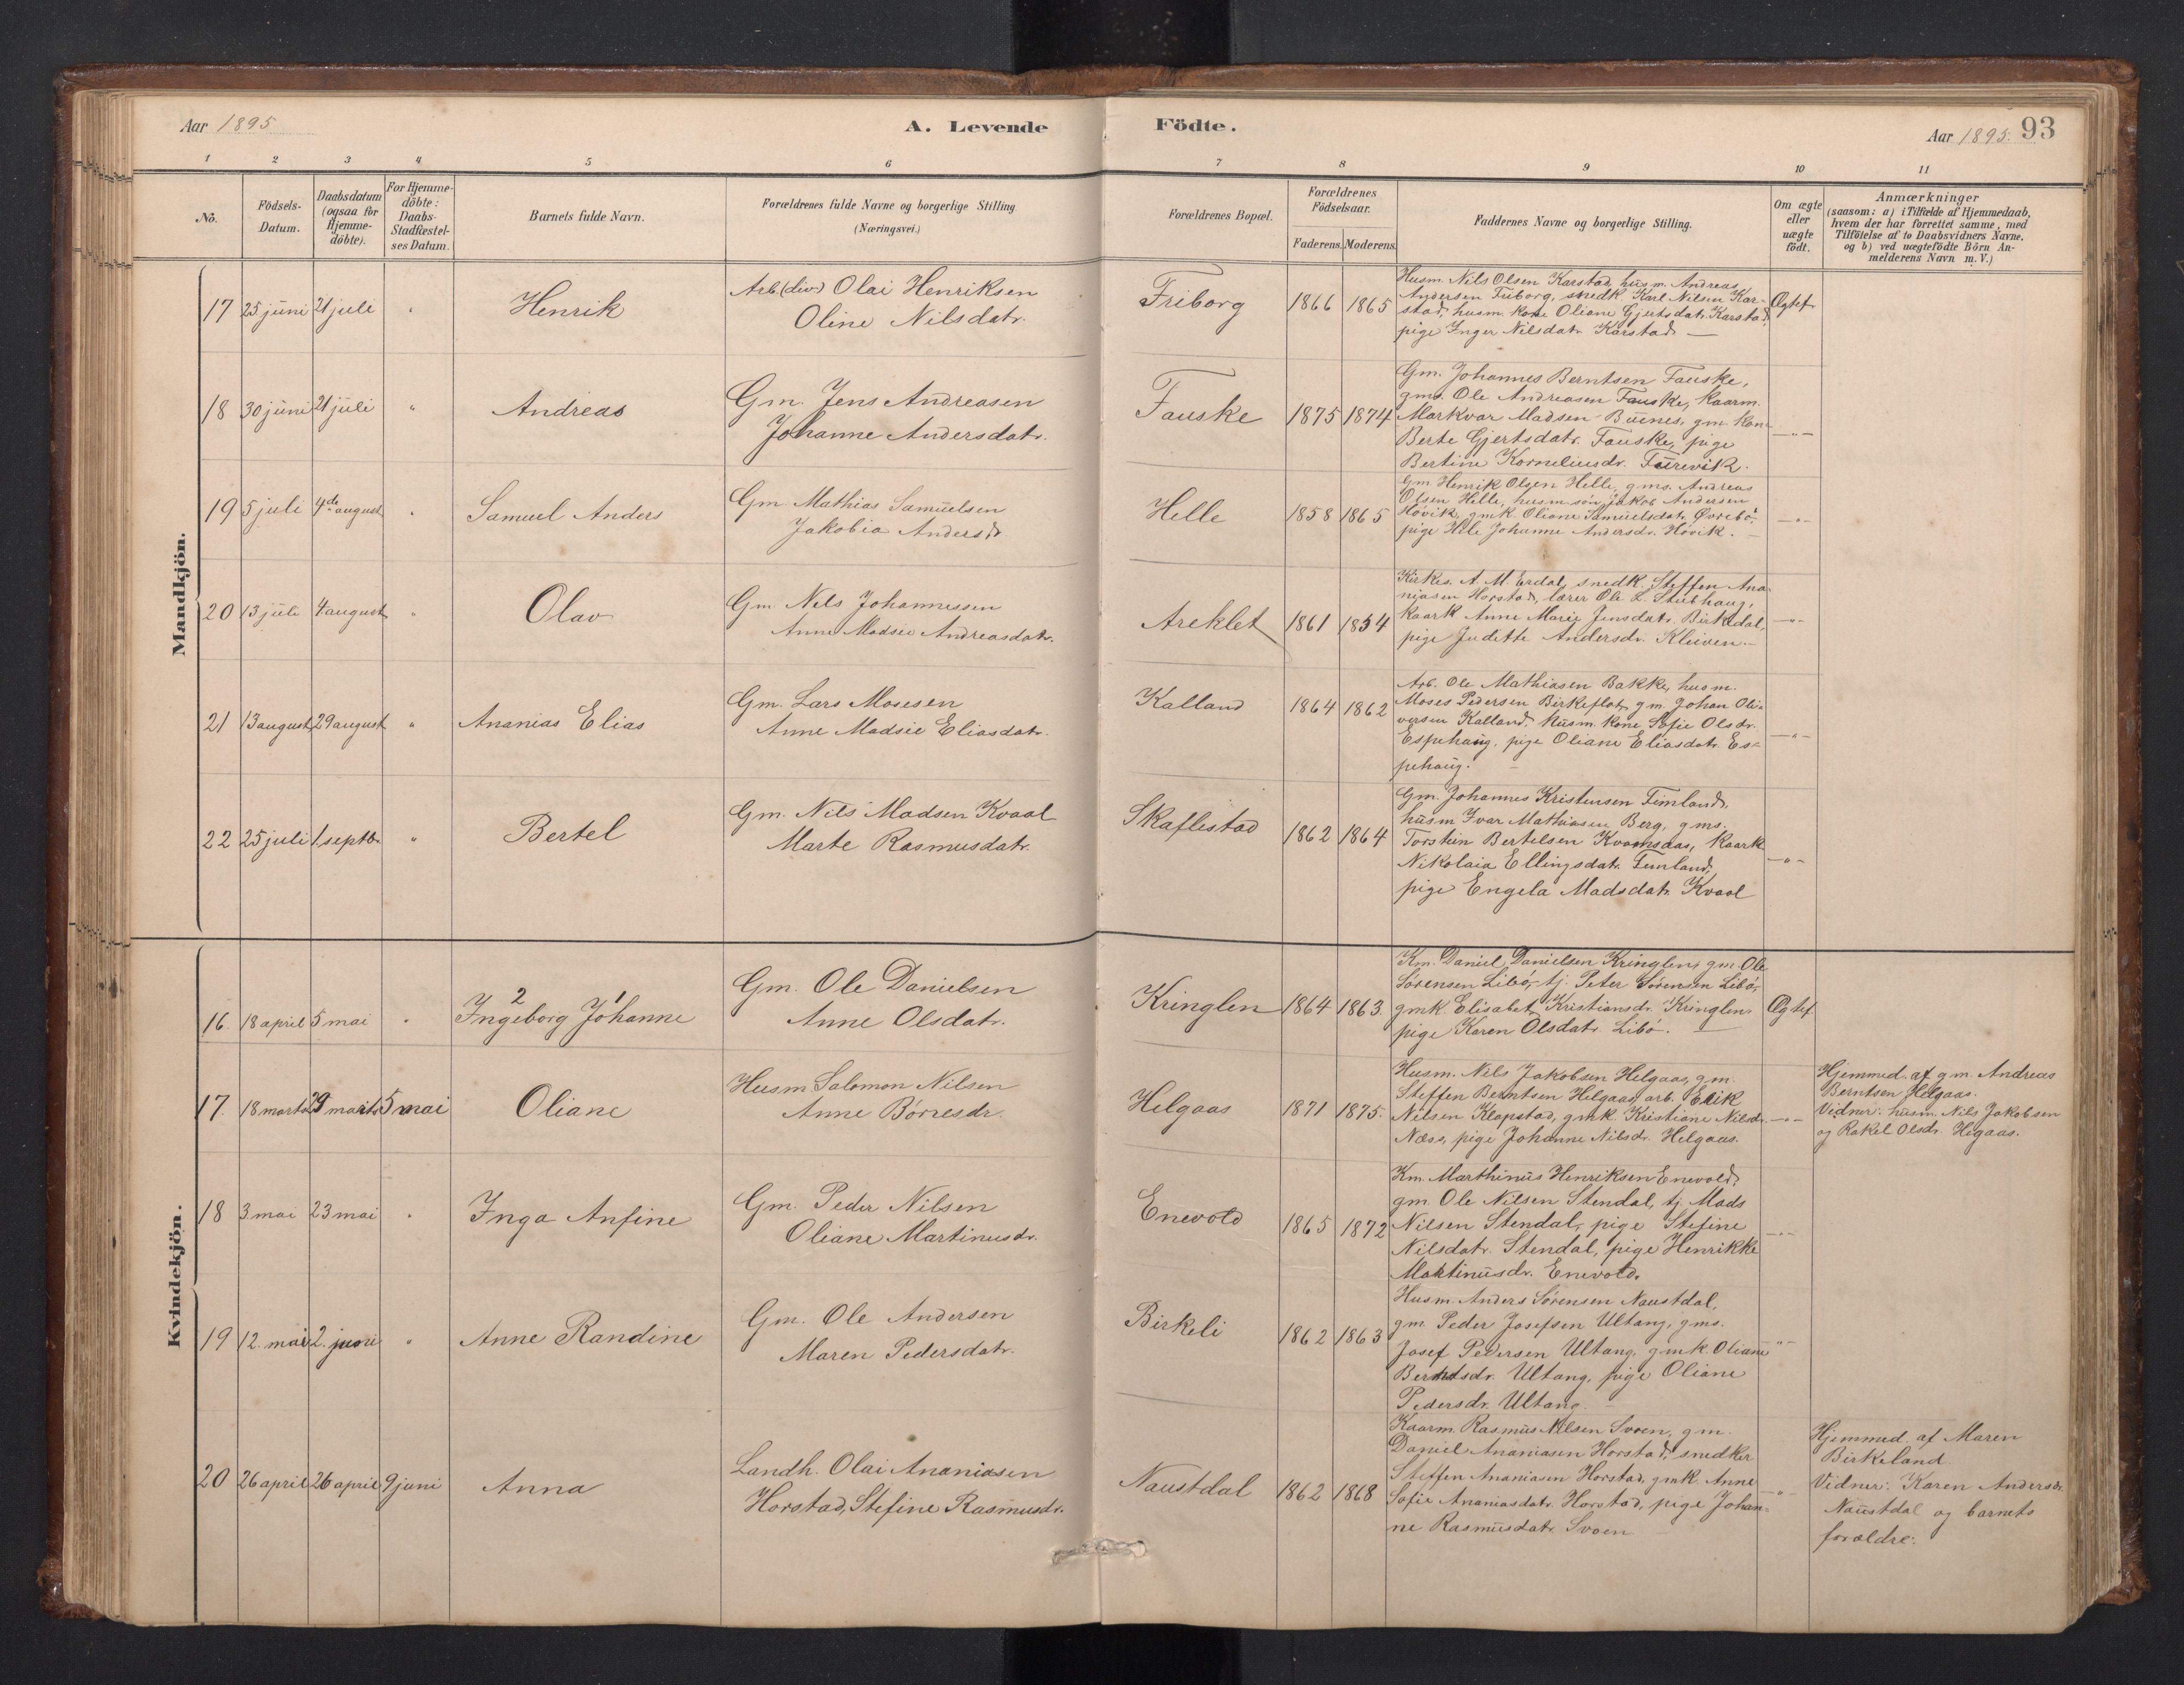 Aar 1895
A. Levende
Födte.
Aar 1895. 93
1 2 3 4 5 6 7 8 9 10 11
No.
Födsels-
Datum.
Daabsdatum
(ogsaa for
Hjemme-
döbte).
For Hjemme-
döbte:
Daabs-
Stadfæstel-
ses Datum.
Barnets fulde Navn.
Forældrenes fulde Navne og borgerlige Stilling
(Næringsvei.)
Forældrenes Bopæl.
Forældrenes
Födselsaar.
Faderens. Moderens.
Faddernes Navne og borgerlige Stilling.
Om ægte
eller
uægte
födt.
Anmærkninger
(saasom: a) i Tilfælde af Hjemmedaab,
hvem der har forrettet samme, med
Tilföielse af to Daabsvidners Navne,
og b) ved uægtefödte Börn An-
melderens Navn m. V.)
Mandkjön.
17 25 juni 21 juli " Henrik
Arb. (div) Olai Henriksen
Oline Nilsdatr.
Friborg 1866 1865
Husm. Nils Olsen Karstad, husm. Andreas
Andersen Friborg, snedk. Karl Nilsen Kar-
stad, husm. kone Oliane Gjertsdatr. Karstad,
pige Inger Nilsdatr. Karstad. —
Ægtef
18 30 juni 21 juli " Andreas
Gm. Jens Andreasen
Johanne Andersdatr.
Fauske 1875 1874
Gm. Johannes Berntsen Fauske,
gms. Ole Andreasen Fauske, kaarm.
Markvar Madsen Buenes, gm. kone
Berte Gjertsdatr. Fauske, pige
Bertine Korneliusdr. Furevik.
—"—
19 5 juli 4de august " Samuel Anders
Gm Mathias Samuelsen
Jakobia Andersd
Helle 1858 1865
Gm. Henrik Olsen Helle, gms. Andreas
Olsen Helle, husm. søn Jakob Andersen
Høvik, gmk. Oliane Samuelsdatr. Øvrebø,
pige Hele Johanne Andersdr. Høvik. —
—"—
20 13 juli 4 august " Olav
Gm. Nils Johannessen
Anne Madsie Andreasdatr.
Areklet 1861 1854
Kirkes. A. M. Erdal, snedk. Steffen Ana-
niasen Horstad, lærer Ole L. Stubhaug,
kaark Anne Marie Jensdatr. Birkedal,
pige Judette Andersdr. Kleiven. —
—"—
21 13 august 29 august " Ananias Elias
Gm. Lars Mosesen
Anne Madsie Eliasdatr.
Kalland 1864 1862
Arb. Ole Mathiasen Bakke, husm.
Moses Pedersen Birkeflot, gm. Johan Oli-
versen Kalland, husm. kone Sofie Olsdr.
Espehaug, pige Oliane Eliasdatr. Es-
pehaug. —
—"—
22 25 juli 1. septbr. " Bertel
Gm. Nils Madsen Kvaal
Marte Rasmusdatr.
Skaflestad 1862 1864
Gm. Johannes Kristensen Fimland,
husm Ivar Mathiasen Berg, gms.
Torstein Bertelsen Kvamsaas, kaark
Nikolaia Ellingsdatr. Fimland,
pige Engela Madsdatr. Kvaal
—"—
Kvindekjön.
16. 18 april 5 mai " Ingeborg 2 Johanne 1
Gm. Ole Danielsen
Anne Olsdatr.
Kringlen 1864 1863.
Km. Daniel Danielsen Kringlen, gm. Ole
Sørensen Libø, tj. Peter Sørensen Libø,
gmk. Elisabet Kristiansdr. Kringlen,
pige Karen Olsdatr. Libø. —
Ægtef
17. 18 marts 29 marts 5 mai Oliane
Husm. Salomon Nilsen
Anne Børresdr.
Helgaas 1871 1875.
Husm. Nils Jakobsen Helgaas, gm.
Steffen Berntsen Helgaas, arb. Erik
Nilsen Klapstad, gmk. Kristiane Nilsdr.
Næss, pige Johanne Nilsdr. Helgaas.
—"—
Hjemmed. af gm. Andreas
Berntsen Helgaas.
Vidner: husm. Nils Jakobsen
og Rakel Olsdr. Hegaas.
18 3 mai 23 mai " Inga Anfine
Gm. Peder Nilsen
Oliane Martinusdr.
Enevold 1865 1872
Km. Marthinus Henriksen Enevold,
gm. Ole Nilsen Stendal, tj. Mads
Nilsen Stendal, pige Stefine
Nilsdatr. Stendal, pige Henrikke
Martinusdr. Enevold.
—"—
19 12. mai 2. juni " Anne Randine
Gm. Ole Andersen
Maren Pedersdatr.
Birkeli 1862 1863
Husm. Anders Sørensen Naustdal,
gm. Peder Josefsen Ultang, gms.
Josef Pedersen Ultang, gmk. Oliane
Berntsdr. Ultang, pige Oliane
Pedersdr. Ultang. —
—"—
20 26 april 26 april 9 juni Anna
Landh. Olai Ananiasen
Horstad, Stefine Rasmusdr.
Naustdal 1862 1868
Kaarm. Rasmus Nilsen Svoen, gm.
Daniel Ananiasen Horstad, snedker
Steffen Ananiasen Horstad, gmk. Anne
Sofie Ananiasdatr. Horstad, pige Johan-
ne Rasmusdatr. Svoen
—"—
Hjemmed. af Maren
Birkeland.
Vidner: Karen Andersdr.
Naustdal og barnets
forældre.